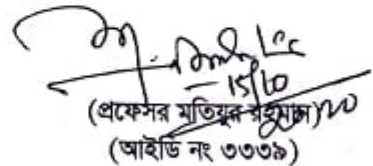 15/10
(প্রফেসর মতিয়ুর রহমান)
(আইডি নং ৩৩৩৯)